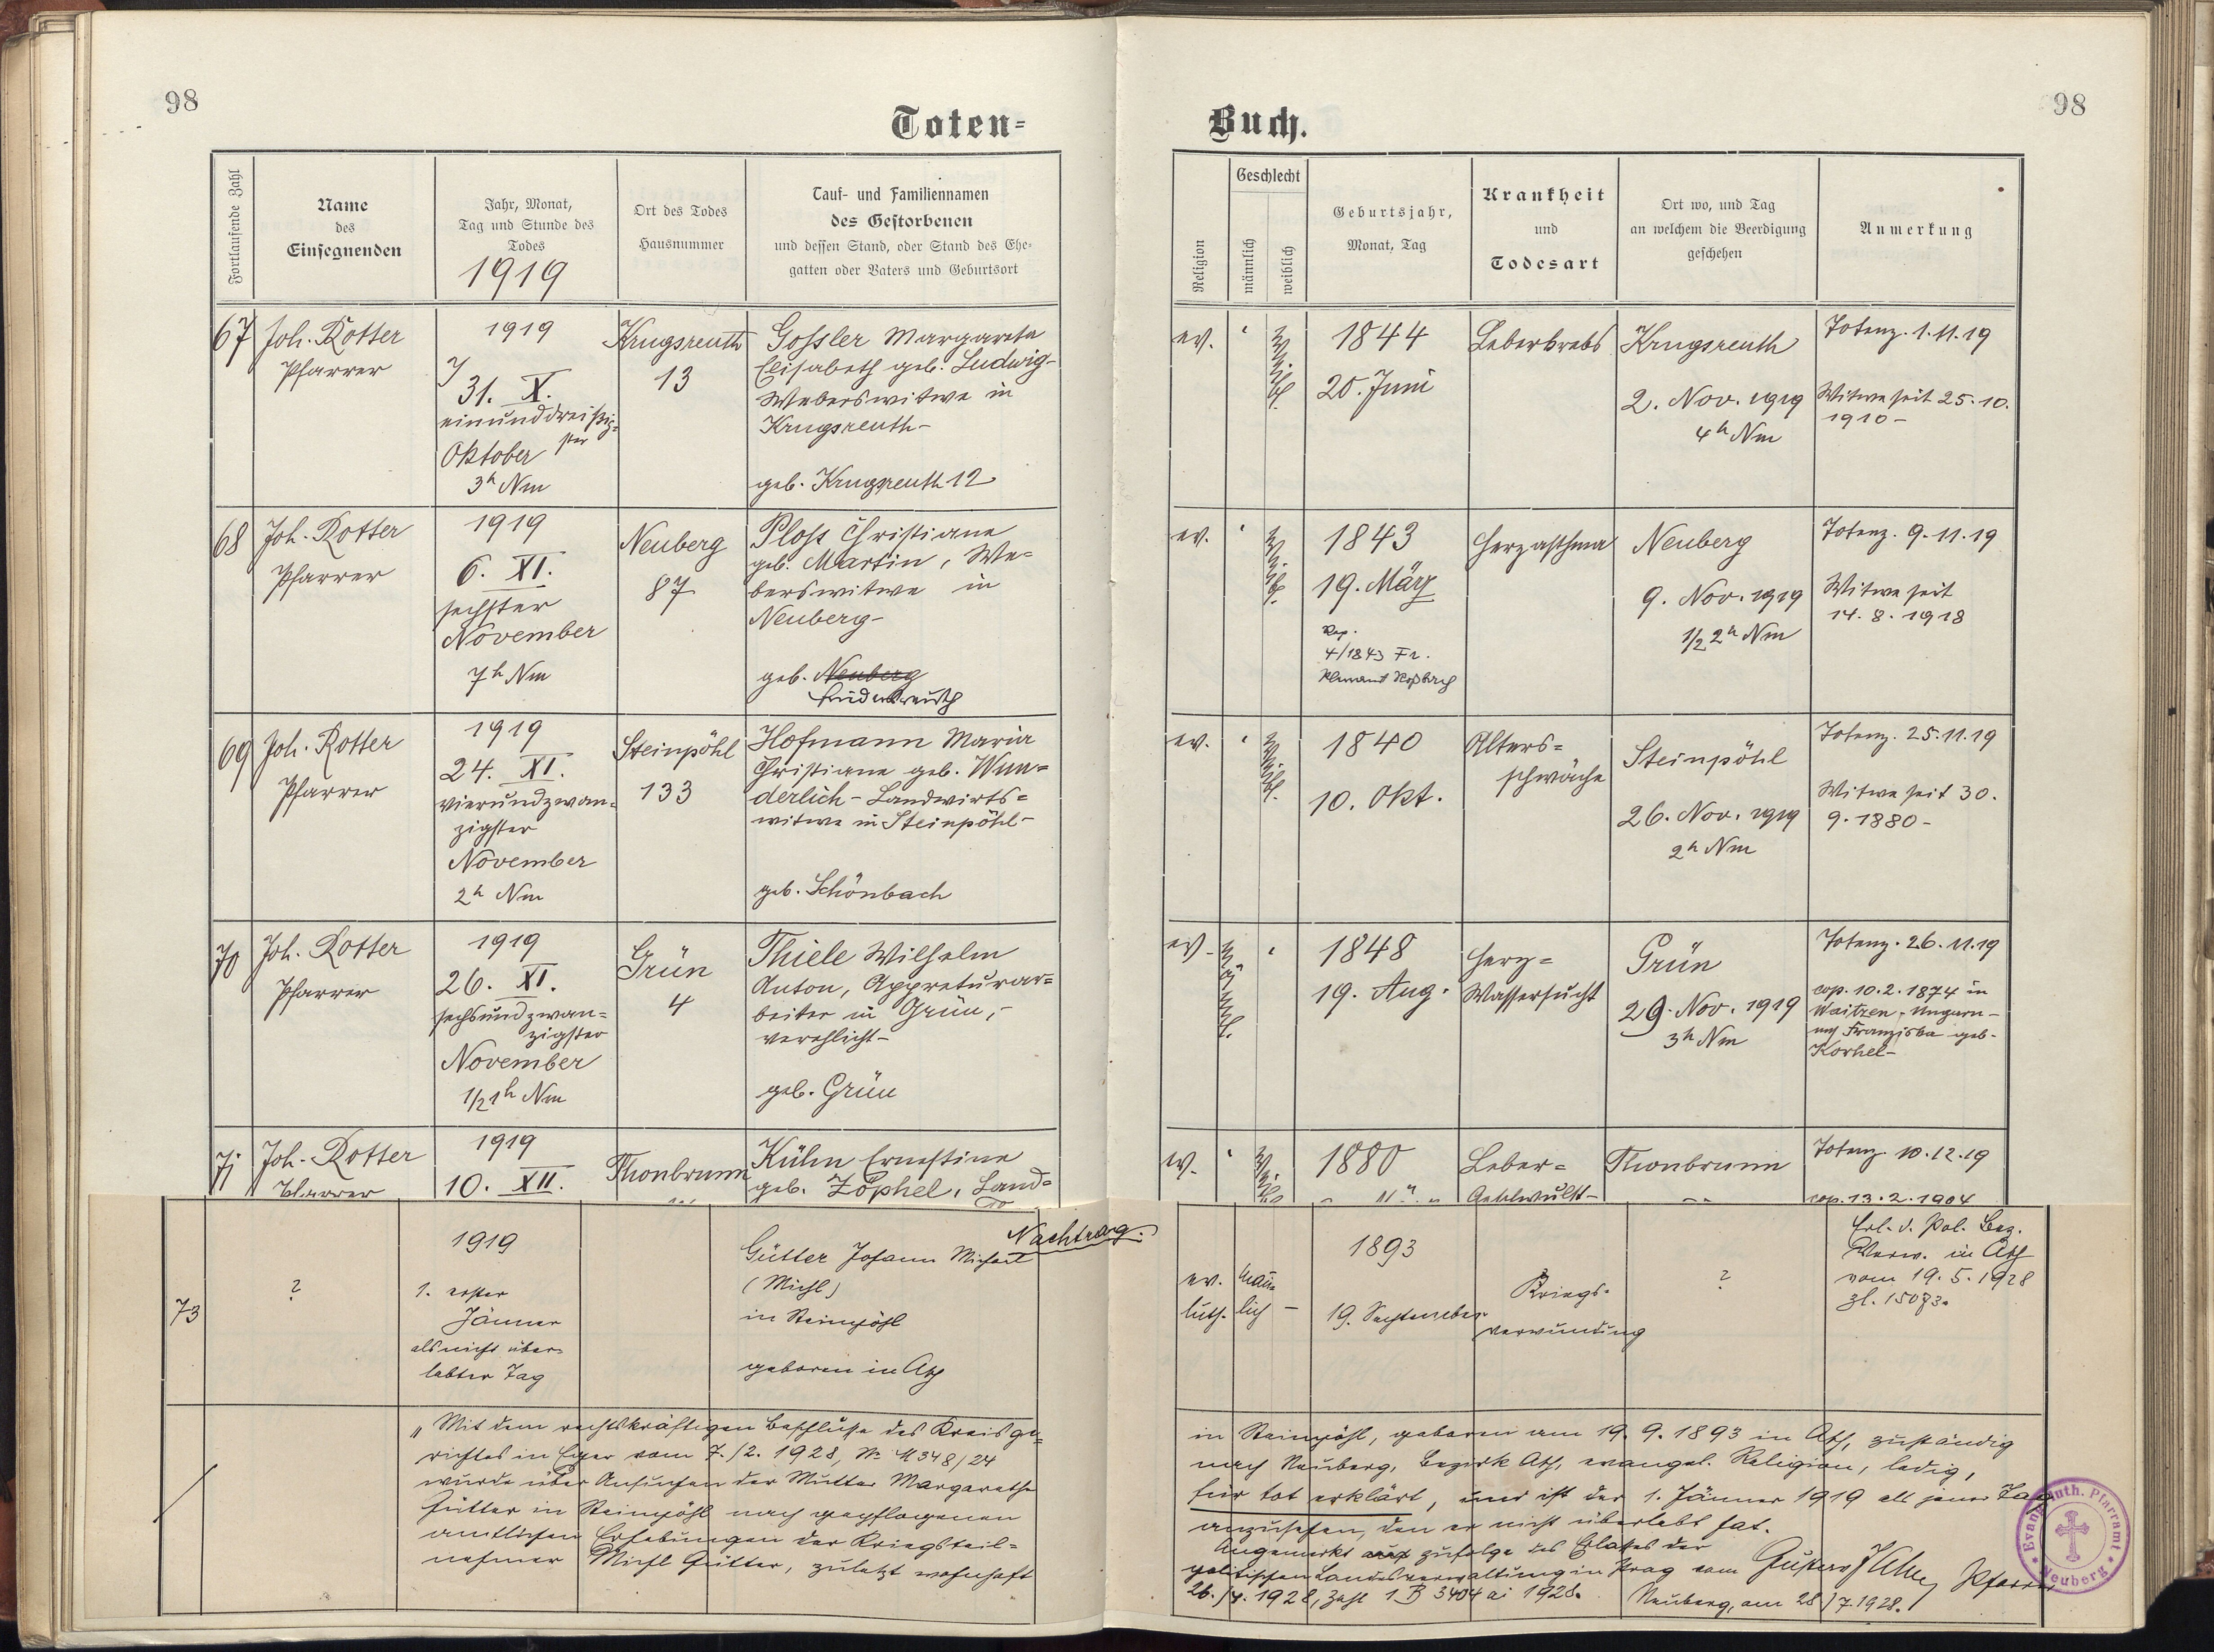 98
Toten-
Fortlaufende Zahl
Name
des
Einsegnenden
Jahr, Monat,
Tag und Stunde des
Todes
1919
Ort des Todes
Hausnummer
Tauf- und Familiennamen
des Gestorbenen
und dessen Stand, oder Stand des Ehe-
gatten oder Vaters und Geburtsort
67
Joh. Rotter
Pfarrer
1919
31. X.
einunddreißig-
ster
Oktober
3h Nm
Krugsreuth
13
Gossler Margareta
Elisabeth geb. Ludwig-
Weberswitwe in
Krugsreuth-
geb. Krugsreuth 12
68
Joh. Rotter
Pfarrer
1919
6. XI.
sechster
November
7h Nm
Neuberg
87
Ploss Christiane
geb. Martin, We-
berswitwe in
Neuberg-
geb. Neuberg
69
Joh. Rotter
Pfarrer
1919
24. XI.
vierundzwan-
zigster
November
2h Nm
Steinpöhl
133
Hofmann Maria
Christiane geb. Wun-
derlich-Landwirts-
witwe in Steinpöhl-
geb. Schönbach
70
Joh. Rotter
Pfarrer
1919
26. XI.
sechsundzwan-
zigster
November
1/2 1h Nm
Grün
4
Thiele Wilhelm
Anton, Appreturar-
beiter in Grün,-
verehlicht-
geb. Grün
71
Joh. Rotter
Pfarrer
1919
10. XII.
Thonbrunn
Kühn Ernestine
geb. Zöphel, Land-
Nachtrag.
73
?
1919
1. erster
Jänner
als nicht über-
lebter Tag
Gütter Johann Michael
(Michl)
in Steinpöhl
geboren in Asch
"Mit dem rechtskräftigen Beschlusse des Kreisge-
richtes in Eger vom 7./2. 1928, Nr 348/24
wurde über Ansuchen der Mutter Margarethe
Gütter in Steinpöhl nach gepflogenen
amtlichen Erhebungen der Kriegsteil-
nehmer Michl Gütter, zuletzt wohnhaft
98
Buch.
Religion
Geschlecht
männlich
weiblich
Geburtsjahr,
Monat, Tag
Krankheit
und
Todesart
Ort wo, und Tag
an welchem die Beerdigung
geschehen
Anmerkung
ev.
weibl.
1844
20. Juni
Leberkrebs
Krugsreuth
2. Nov. 1919
4h Nm
Totenz. 1.11.19
Witwe seit 25.10.
1910-
ev.
weibl.
1843
19. März
4/1843 Fr.
Herzasthma
Neuberg
9. Nov. 1919
1/2 2h Nm
Totenz. 9.11.19
Witwe seit
14.8.1918
ev.
weibl.
1840
10. Okt.
Alters-
schwäche
Steinpöhl
26. Nov. 1919
2h Nm
Totenz. 25.11.19
Witwe seit 30.
9.1880-
ev.
männl.
1848
19. Aug.
Herz-
Wassersucht
Grün
29. Nov. 1919
3h Nm
Totenz. 26.11.19
cop. 10.2.1874 in
Waitzen, Ungarn-
mit Franziska geb.
Korhel-
ev.
weibl.
1880
Leber-
Thonbrunn
Totenz. 10.12.19
cop. 13.2.1904
ev.
luth.
männ-
lich
-
1893
19. September
Kriegs-
verwundung
?
Erl. d. Pol. Bez.
Verw. in Asch
vom 19.5.1928
Zl. 15073.
in Steinpöhl, geboren am 19.9.1893 in Asch, zuständig
nach Neuberg, Bezirk Asch, evangel. Religion, ledig,
für tot erklärt, und ist der 1. Jänner 1919 als jener Tag
anzusehen, den er nicht überlebt hat.
Angemerkt zufolge des Erlasses der
politischen Landesverwaltung in Prag vom
26./4. 1928, Zahl 1 B 3404 ai 1928.
Neuberg, am 28./7.1928.
Pfarrer
Evang. luth. Pfarramt
Neuberg